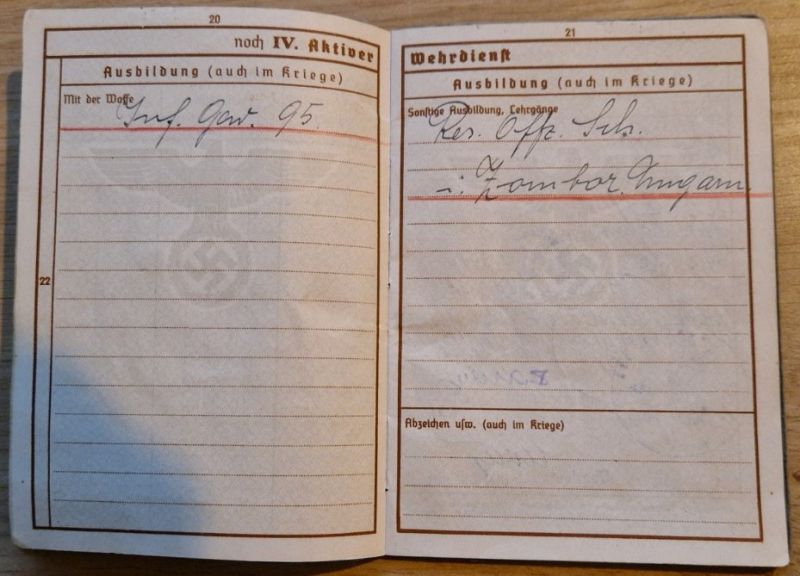 20
noch IV. Aktiver
Ausbildung (auch im Kriege)
Mit der Waffe
Inf. Gew. 95.
22
21
Wehrdienst
Ausbildung (auch im Kriege)
Sonstige Ausbildung, Lehrgänge
Res. Offz. Sch.
i. Zombor, Ungarn
Abzeichen usw. (auch im Kriege)